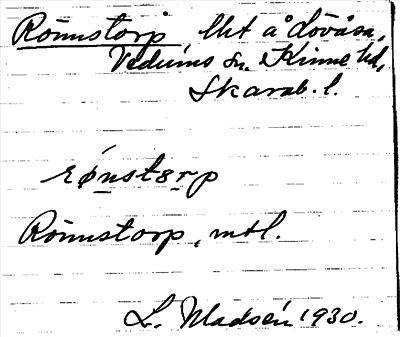 Rönnstorp lht å Lovåsa,
Vedums sn. Kinne hd,
Skarab. l.
rǿnstɔrp
Rönnstorp, mtl.
L. Madsén 1930.